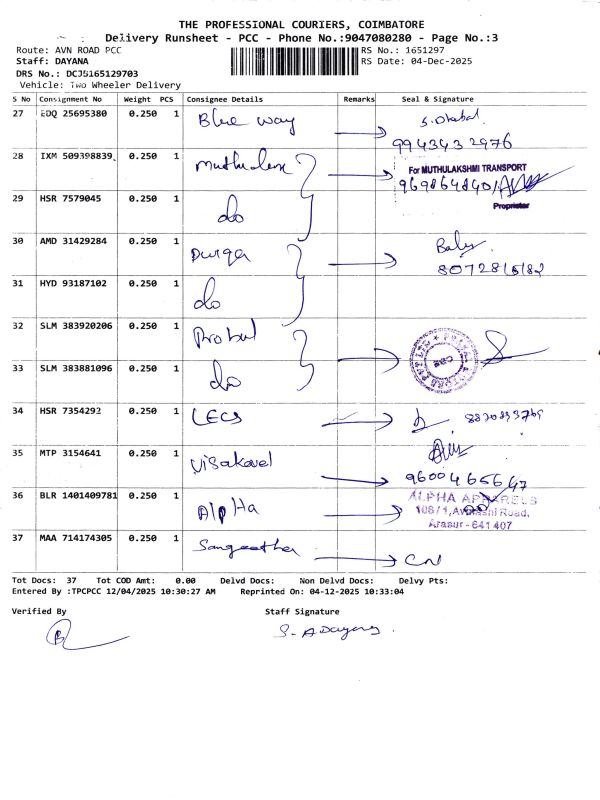 THE PROFESSIONAL COURIERS, COIMBATORE
Delivery Runsheet - PCC - Phone No.:9047080280 - Page No.:3
Route: AVN ROAD PCC RS No.: 1651297
Staff: DAYANA RS Date: 04-Dec-2025
DRS No.: DCJ5165129703
Vehicle: Two Wheeler Delivery
S No Consignment No Weight PCS Consignee Details Remarks Seal & Signature
27 EDQ 25695380 0.250 1 Blue way
9943432976
28 IXM 509398839 0.250 1
For MUTHULAKSHMI TRANSPORT
Proprietor
29 HSR 7579045 0.250 1 do
30 AMD 31429284 0.250 1 Durga Baby
31 HYD 93187102 0.250 1 do
32 SLM 383920206 0.250 1
33 SLM 383881096 0.250 1 do
34 HSR 7354292 0.250 1 LECS
35 MTP 3154641 0.250 1
36 BLR 1401409781 0.250 1 Alpha
ALPHA APPARELS
108/1, Avinashi Road,
Arasur - 641 407
37 MAA 714174305 0.250 1 Sangeetha
Tot Docs: 37 Tot COD Amt: 0.00 Delvd Docs: Non Delvd Docs: Delvy Pts:
Entered By :TPCPCC 12/04/2025 10:30:27 AM Reprinted On: 04-12-2025 10:33:04
Verified By Staff Signature